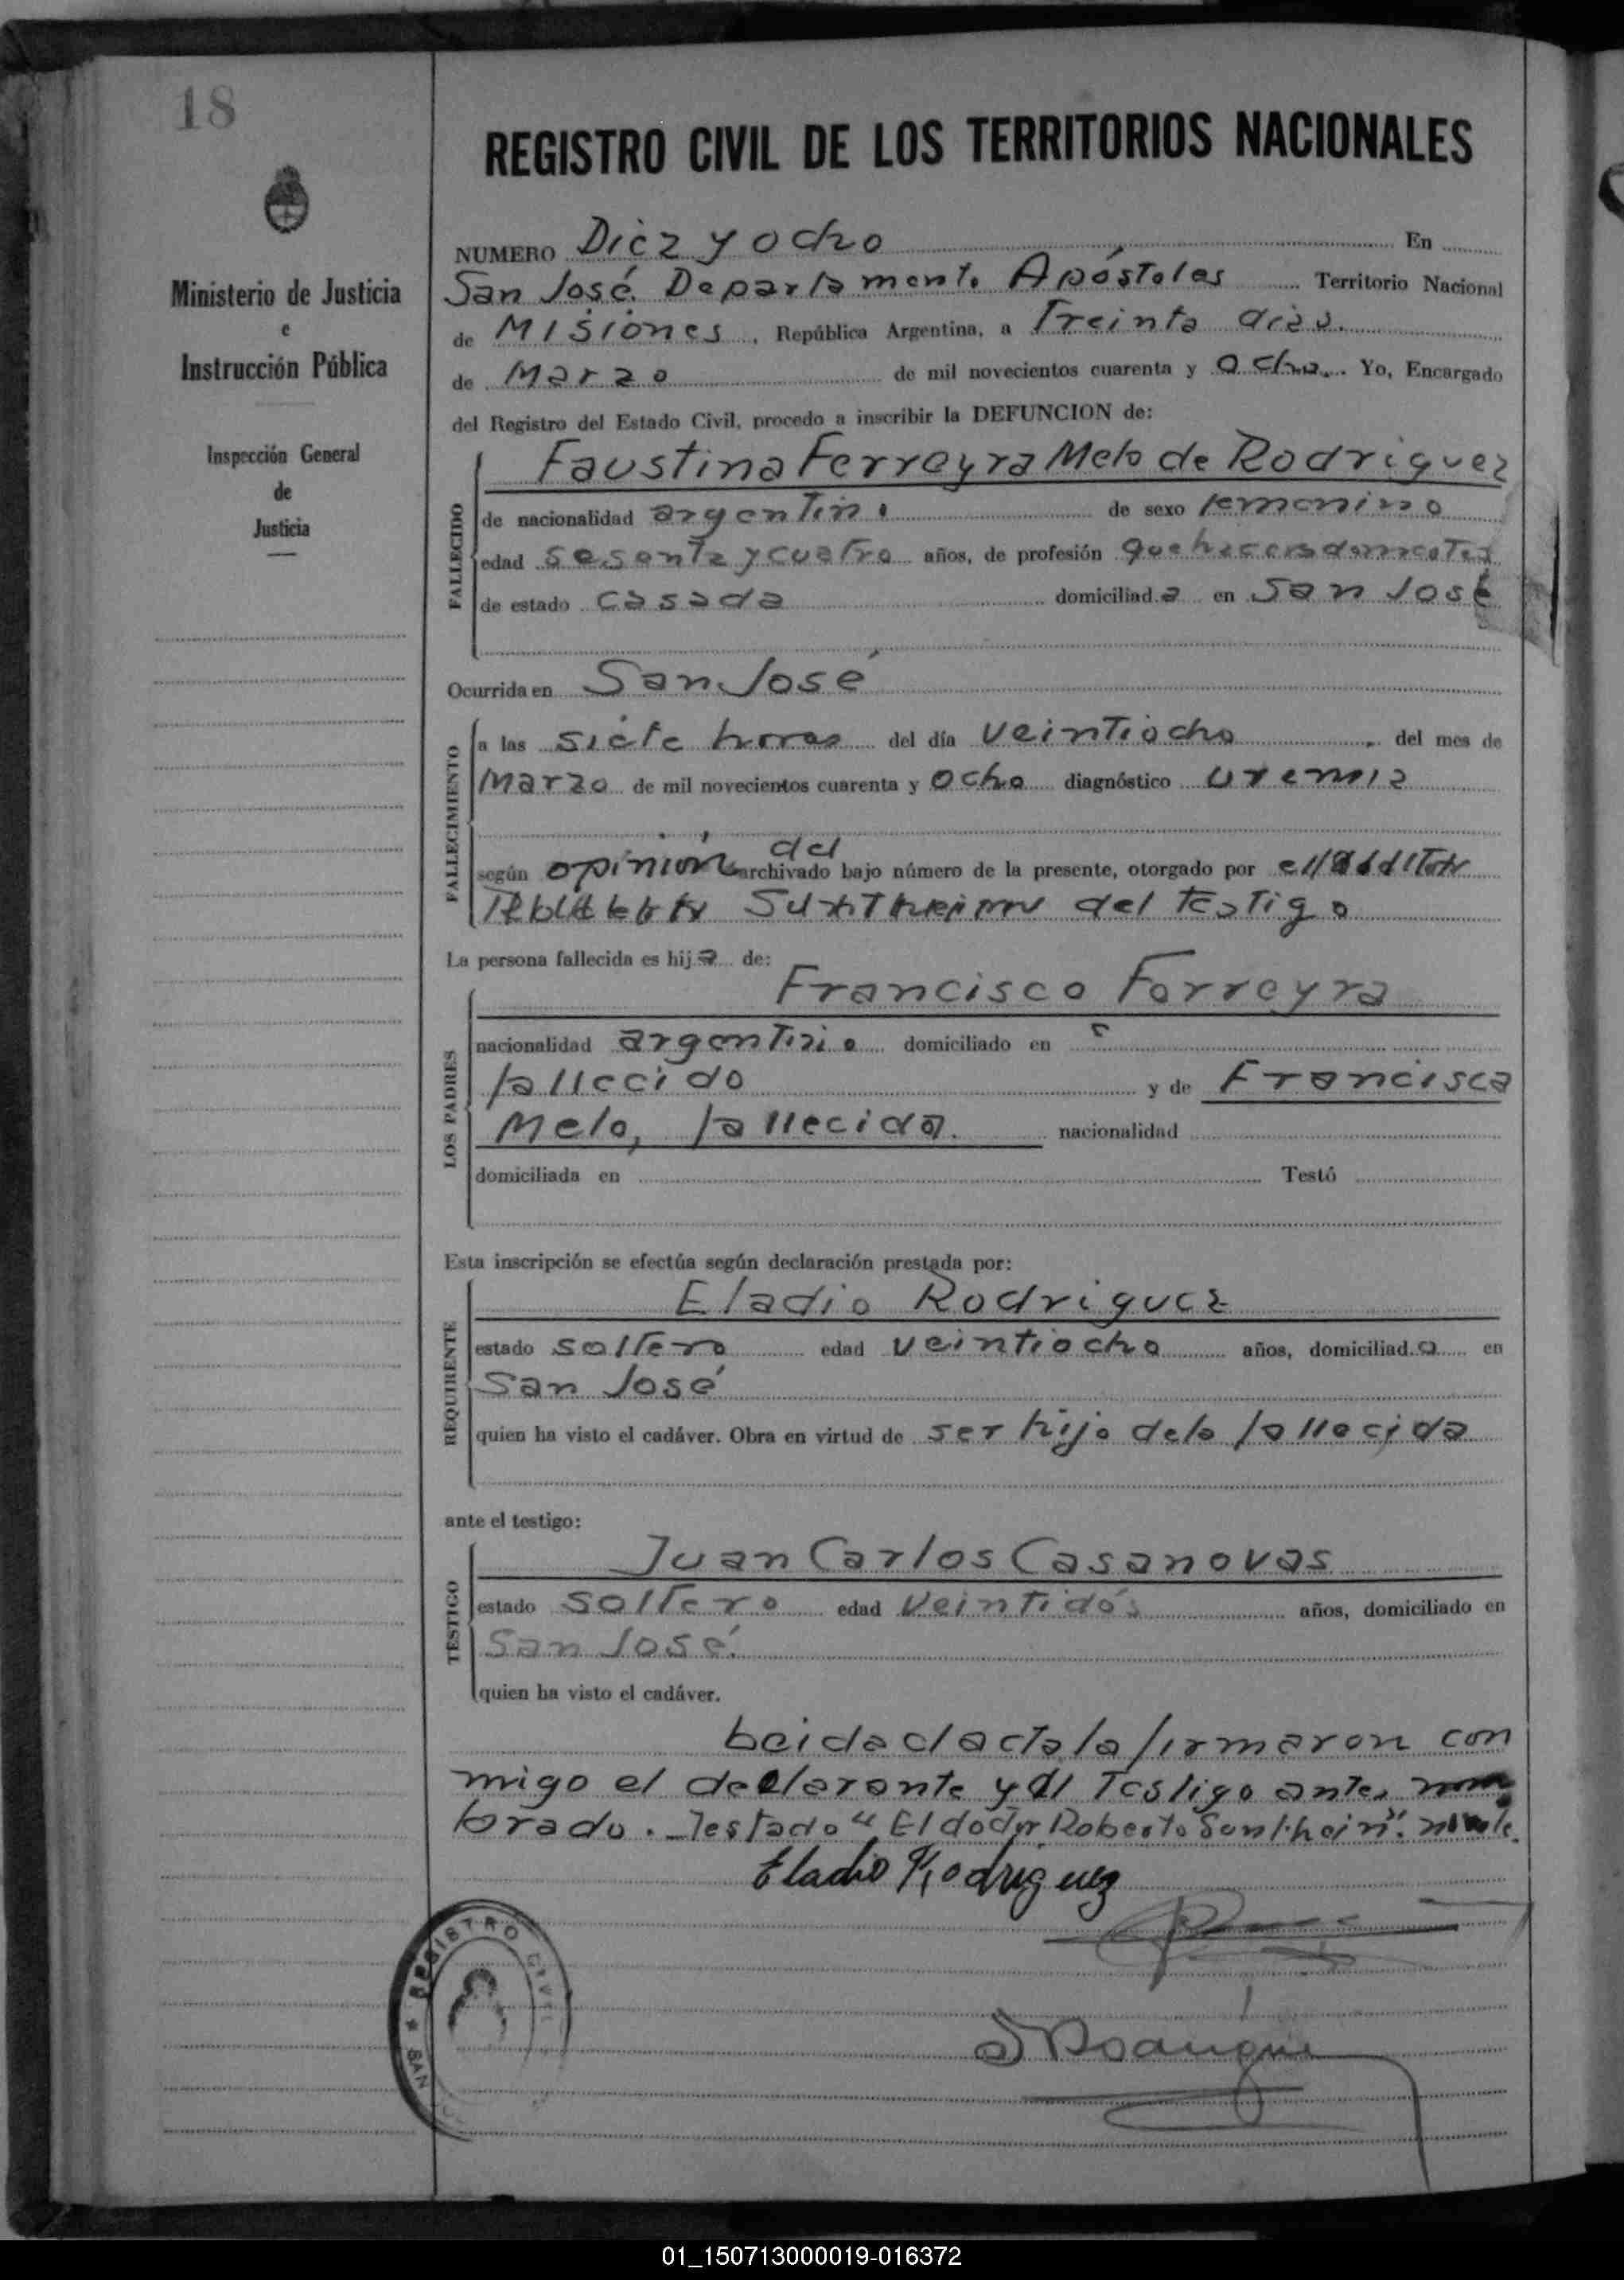 18
REGISTRO CIVIL DE LOS TERRITORIOS NACIONALES
Ministerio de Justicia
e
Instrucción Pública
Inspección General
de
Justicia
NUMERO Diez y ocho En
San José Departamento Apóstoles Territorio Nacional
de Misiones, República Argentina, a Treinta dias
de Marzo de mil novecientos cuarenta y Ocho. Yo, Encargado
del Registro del Estado Civil, procedo a inscribir la DEFUNCION de:
FALLECIDO
Faustina Ferreyra Melo de Rodriguez
de nacionalidad argentina de sexo femenino
edad sesenta y cuatro años, de profesión quehaceres domesticos
de estado casada domiciliada en San José
Ocurrida en San José
FALLECIMIENTO
a las siete horas del día veintiocho del mes de
Marzo de mil novecientos cuarenta y ocho diagnóstico uremia
del
según opinión archivado bajo número de la presente, otorgado por
del testigo
La persona fallecida es hija de:
LOS PADRES
Francisco Ferreyra
nacionalidad argentino domiciliado en
fallecido y de Francisca
Melo, fallecida. nacionalidad
domiciliada en Testó
Esta inscripción se efectúa según declaración prestada por:
REQUIRENTE
Eladio Rodriguez
estado soltero edad veintiocho años, domiciliado en
San José
quien ha visto el cadáver. Obra en virtud de ser hijo de la fallecida
ante el testigo:
TESTIGO
Juan Carlos Casanovas
estado soltero edad veintidós años, domiciliado en
San José.
quien ha visto el cadáver.
Leida el acta la firmaron con
migo el declarante y el Testigo antes nom
brado. Testado "El doctor Roberto
Eladio Rodriguez
REGISTRO CIVIL
SAN
01_150713000019-016372